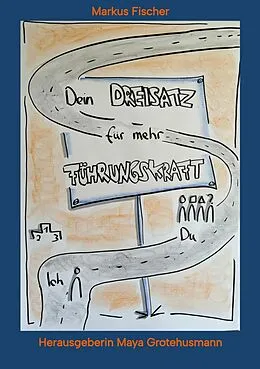 Markus Fischer
Dein DREISATZ
für mehr
FÜHRUNGSKRAFT
2 1 3
Du
Ich
Herausgeberin Maya Grotehusmann